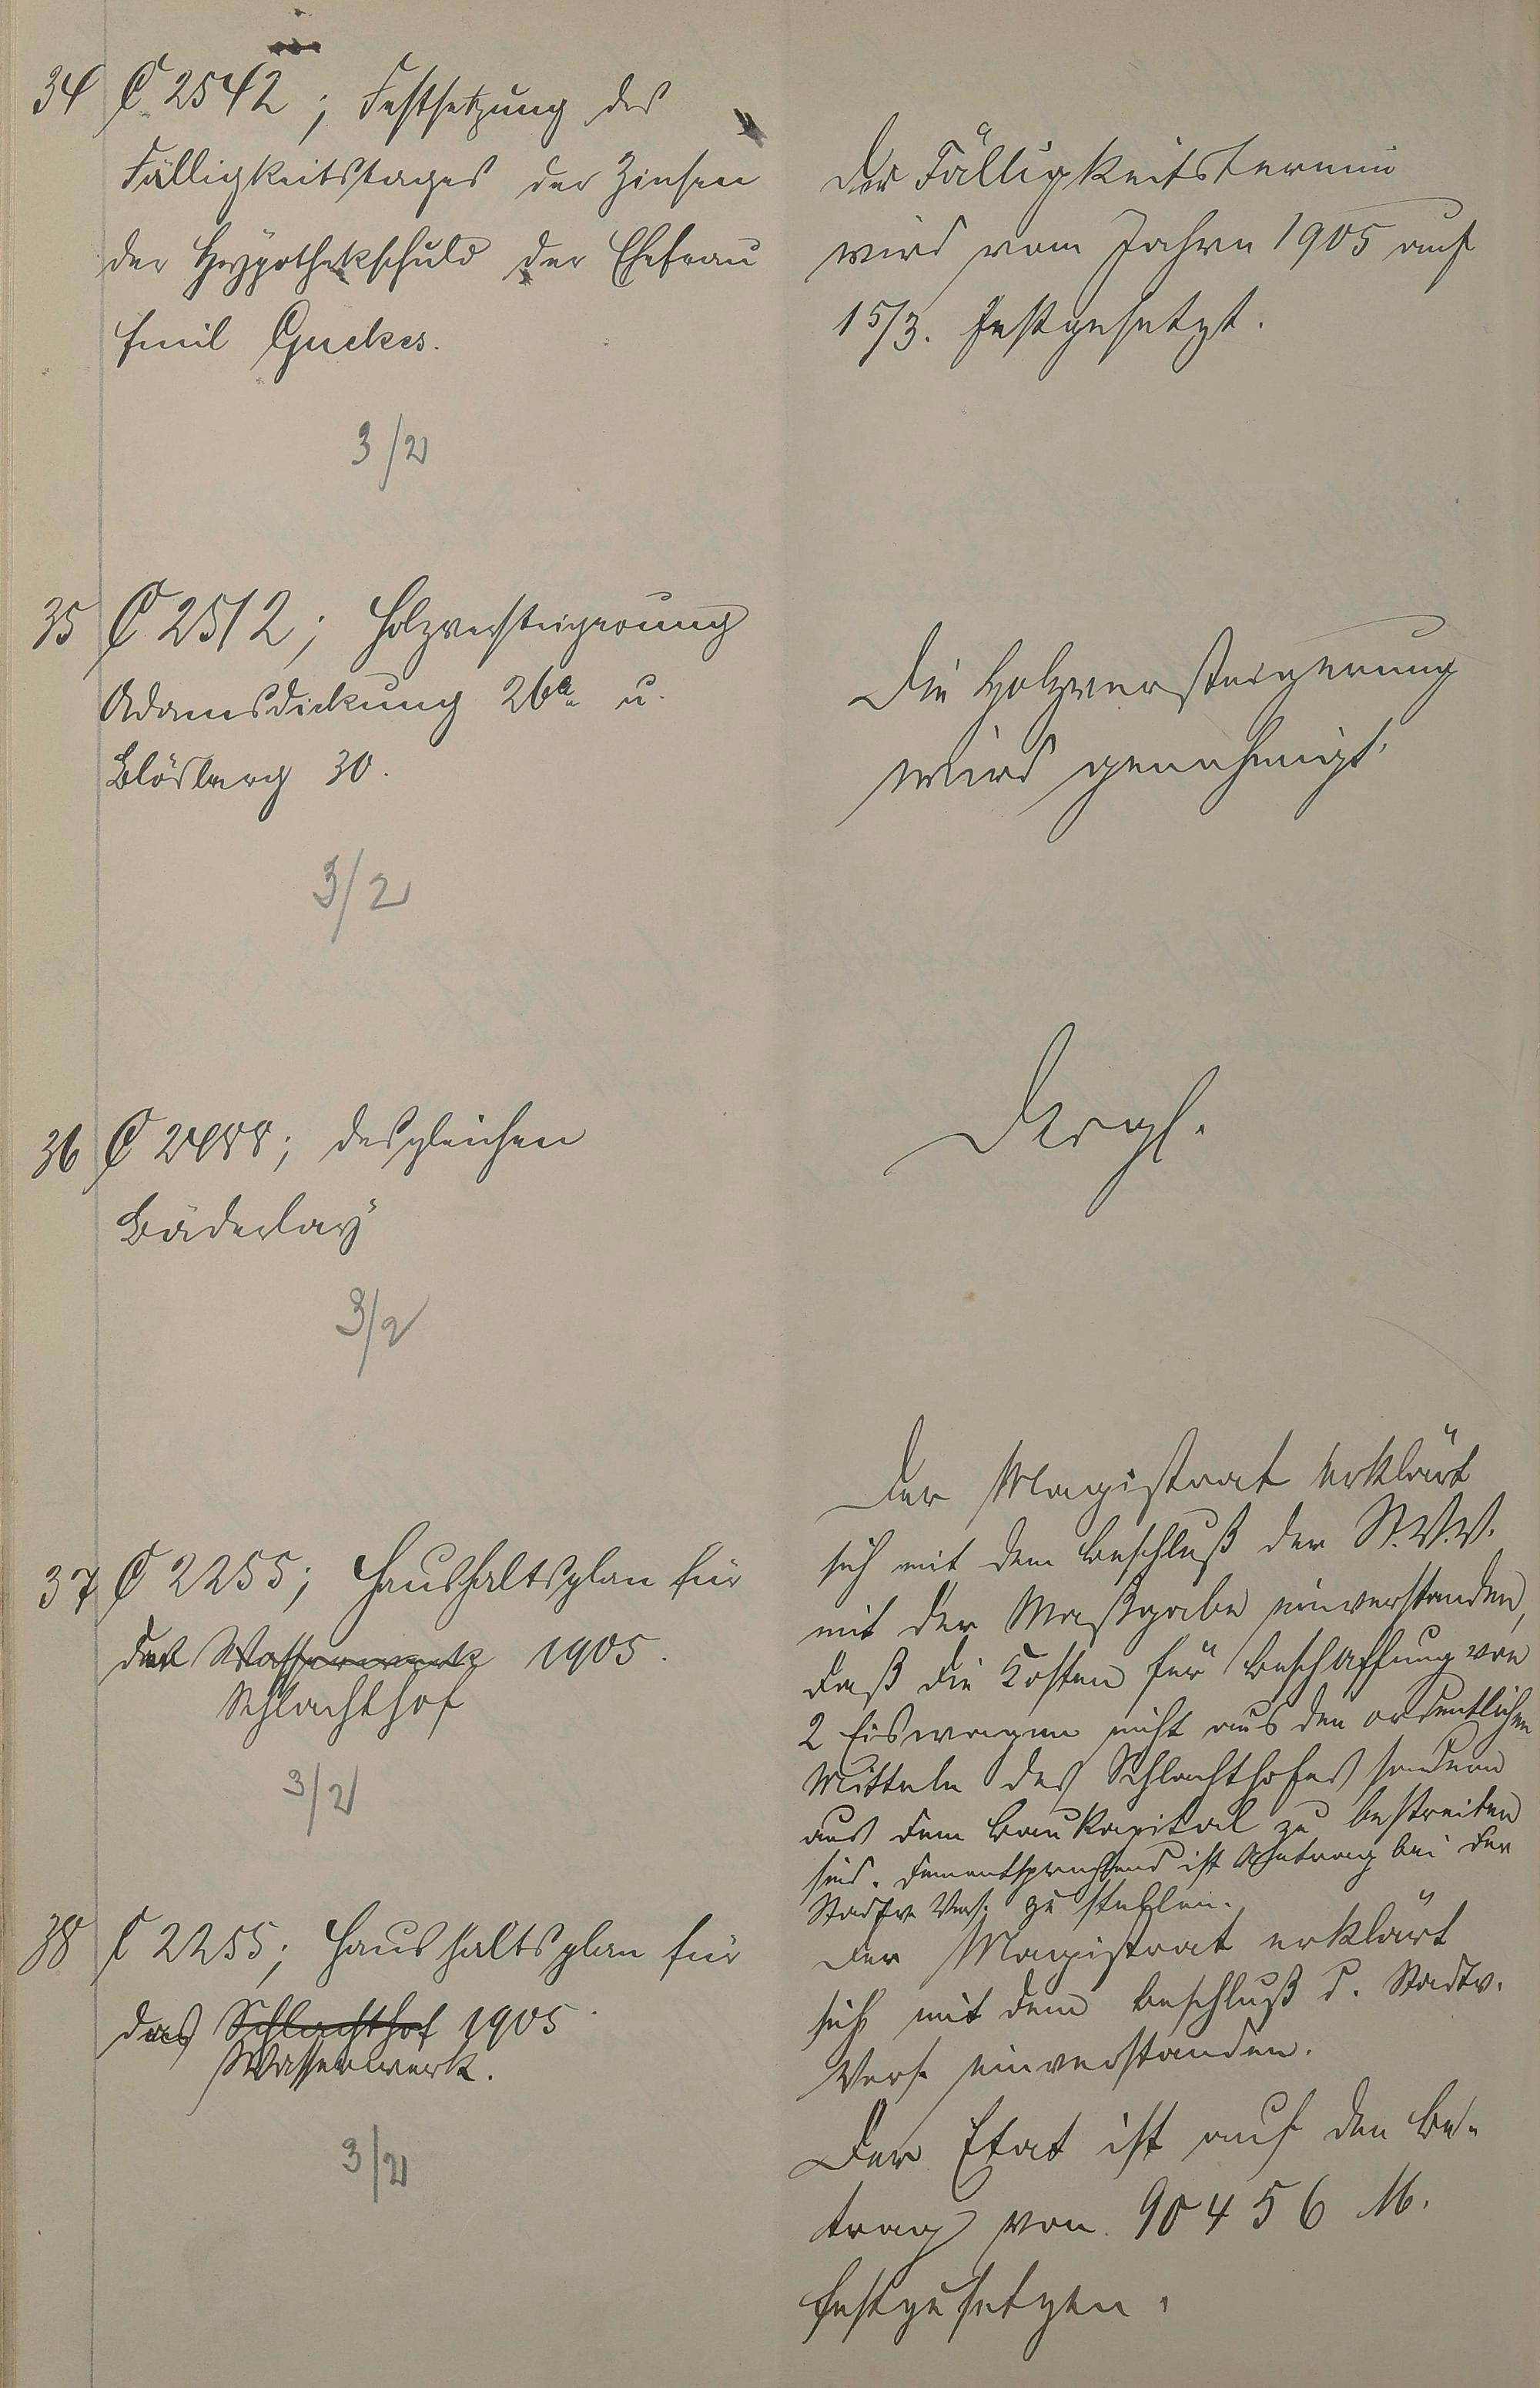 34 C 2542; Festsetzung des
Fälligkeitstages der Zinsen
der Hypothekschuld der Ehefrau
Emil Guckes.
3/2
Der Fälligkeitstermin
wird vom Jahre 1905 auf
15/3. festgesetzt.
35 C 2512; Holzversteigerung
Adamsdickung 26a u.
Blösberg 30.
3/2
Die Holzversteigerung
wird genehmigt.
36 C 2488; desgleichen
Bäderlay
3/2
Desgl.
37 C 2255; Haushaltsplan für
den Wasserwerk 1905.
Schlachthof
3/2
Der Magistrat erklärt
sich mit dem Beschluß der St.V.V.
mit der Maßgabe einverstanden,
daß die Kosten für Beschaffung von
2 Eiswagen nicht aus den ordentlichen
Mitteln des Schlachthofes sondern
aus dem Baukapital zu bestreiten
sind. Dementsprechend ist Antrag bei der
Stadtv. Vers. zu stellen.
38 C 2255; Haushaltsplan für
das Schlachthof 1905.
Wasserwerk.
3/2
Der Magistrat erklärt
sich mit dem Beschluß d. Stadtv.
Vers. einverstanden.
Der Etat ist auf den Be-
trag von 90456 M.
festzusetzen.